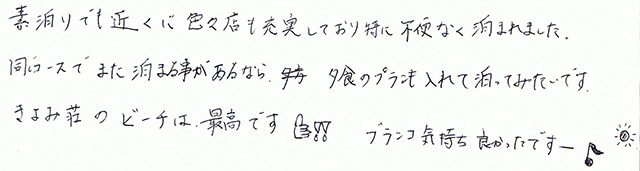 素泊りでも近くに色々店も充実しており特に不便なく泊まれました.
同じコースでまた泊まる事があるなら. 夕食のプランも入れて泊ってみたいです.
きよみ荘のビーチは.最高です!! ブランコ気持ち良かったですー♪